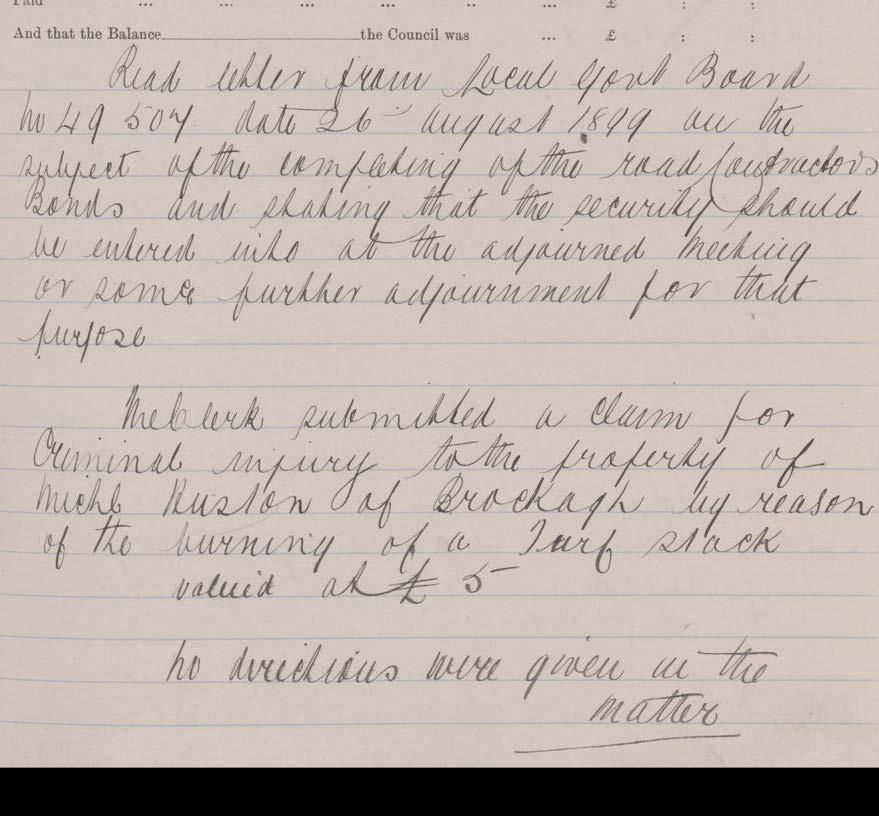 Paid ... ... ... ... .. ... £ : :
And that the Balance the Council was ... £ : :
Read letter from Local Govt Board
no 49 507 date 26 August 1899 on the
subject of the completing of the road Contractors
Bonds and stating that the security should
be entered into at the adjourned meeting
or some further adjournment for that
purpose
The Clerk submitted a claim for
Criminal injury to the property of
Michl Huston of Brockagh by reason
of the burning of a Turf stack
valued at £ 5
no directions were given in the
matter